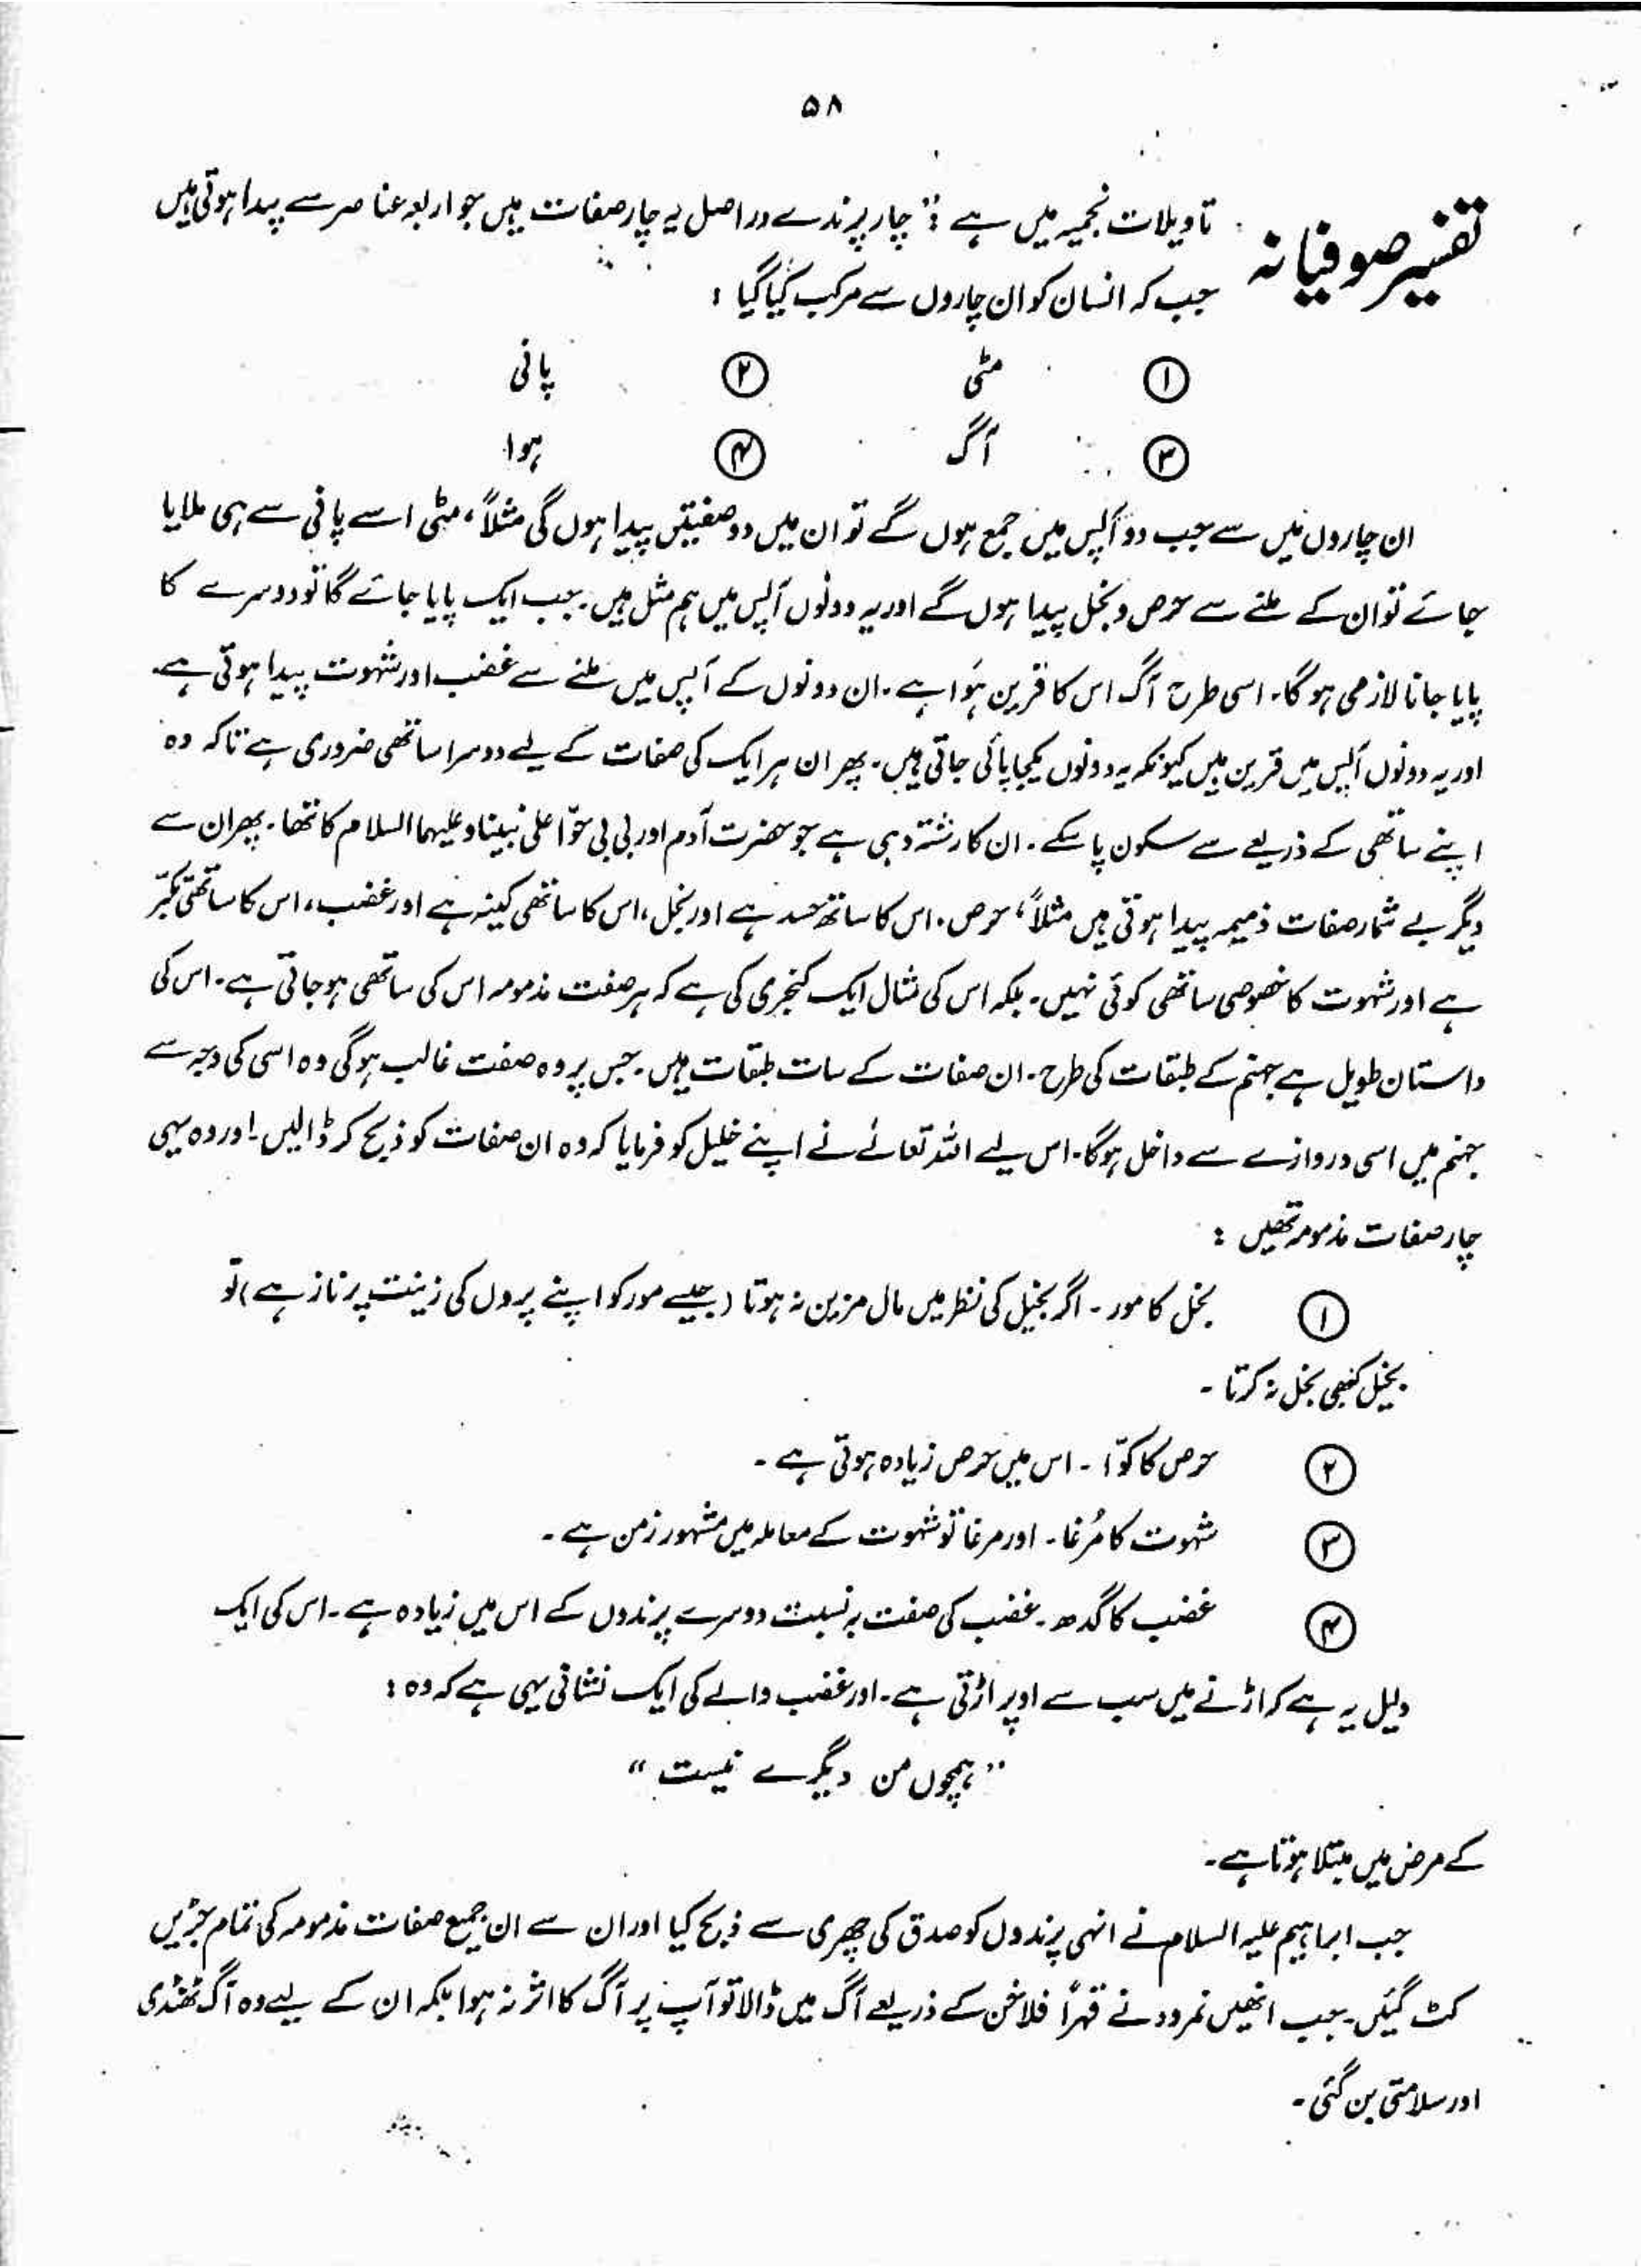 ۵۸
تفسیر صوفیانہ
تاویلات نجمیہ میں ہے : چار پرندے دراصل یہ چار صفات ہیں جو اربعہ عناصر سے پیدا ہوتی ہیں
جب کہ انسان کو ان چاروں سے مرکب کیا گیا :
① مٹی ② پانی
③ آگ ④ ہوا
ان چاروں میں سے جب دو آپس میں جمع ہوں گے تو ان میں دو صفتیں پیدا ہوں گی مثلاً ، مٹی اسے پانی سے ہی ملایا
جائے تو ان کے ملنے سے حرص و بخل پیدا ہوں گے اور یہ دونوں آپس میں ہم مثل ہیں ۔ جب ایک پایا جائے گا تو دوسرے کا
پایا جانا لازمی ہو گا ۔ اسی طرح آگ اس کا قرین ہَوا ہے ۔ ان دونوں کے آپس میں ملنے سے غضب اور شہوت پیدا ہوتی ہے۔
اور یہ دونوں آپس میں قرین ہیں کیونکہ یہ دونوں یکجا پائی جاتی ہیں ۔ پھر ان ہر ایک کی صفات کے لیے دوسرا ساتھی ضروری ہے تاکہ وہ
اپنے ساتھی کے ذریعے سے سکون پا سکے ۔ ان کا رشتہ وہی ہے جو حضرت آدم اور بی بی حوّا علی نبینا و علیہما السلام کا تھا ۔ پھر ان سے
دیگر بے شمار صفات ذمیمہ پیدا ہوتی ہیں مثلاً ، حرص ۔ اس کا ساتھ حسد ہے اور بخل ، اس کا ساتھی کینہ ہے اور غضب ، اس کا ساتھی تکبّر
ہے اور شہوت کا خصوصی ساتھی کوئی نہیں ۔ بلکہ اس کی مثال ایک کنجری کی ہے کہ ہر صفت مذمومہ اس کی ساتھی ہو جاتی ہے ۔ اس کی
داستان طویل ہے جہنم کے طبقات کی طرح ۔ ان صفات کے سات طبقات ہیں ۔ جس پر وہ صفت غالب ہو گی وہ اسی کی وجہ سے
جہنم میں اسی دروازے سے داخل ہوگا ۔ اس لیے اللہ تعالےٰ نے اپنے خلیل کو فرمایا کہ وہ ان صفات کو ذبح کر ڈالیں ۔ اور وہ یہی
چار صفات مذمومہ تھیں :
① بخل کا مور ۔ اگر بخیل کی نظر میں مال مزین نہ ہوتا ( جیسے مور کو اپنے پروں کی زینت پر ناز ہے ) تو
بخیل کبھی بخل نہ کرتا ۔
② حرص کا کوّا ۔ اس میں حرص زیادہ ہوتی ہے ۔
③ شہوت کا مُرغا ۔ اور مرغا تو شہوت کے معاملہ میں مشہور زمن ہے ۔
④ غضب کا گدھ ۔ غضب کی صفت بہ نسبت دوسرے پرندوں کے اس میں زیادہ ہے ۔ اس کی ایک
دلیل یہ ہے کہ اڑنے میں سب سے اوپر اڑتی ہے ۔ اور غضب والے کی ایک نشانی یہی ہے کہ وہ :
” ہمچوں من دیگرے نیست “
کے مرض میں مبتلا ہوتا ہے ۔
جب ابراہیم علیہ السلام نے انہی پرندوں کو صدق کی چھری سے ذبح کیا اور ان سے ان جمیع صفات مذمومہ کی تمام جڑیں
کٹ گئیں ۔ جب انھیں نمرود نے قہراً فلاخن کے ذریعے آگ میں ڈالا تو آپ پر آگ کا اثر نہ ہوا بلکہ ان کے لیے وہ آگ ٹھنڈی
اور سلامتی بن گئی ۔